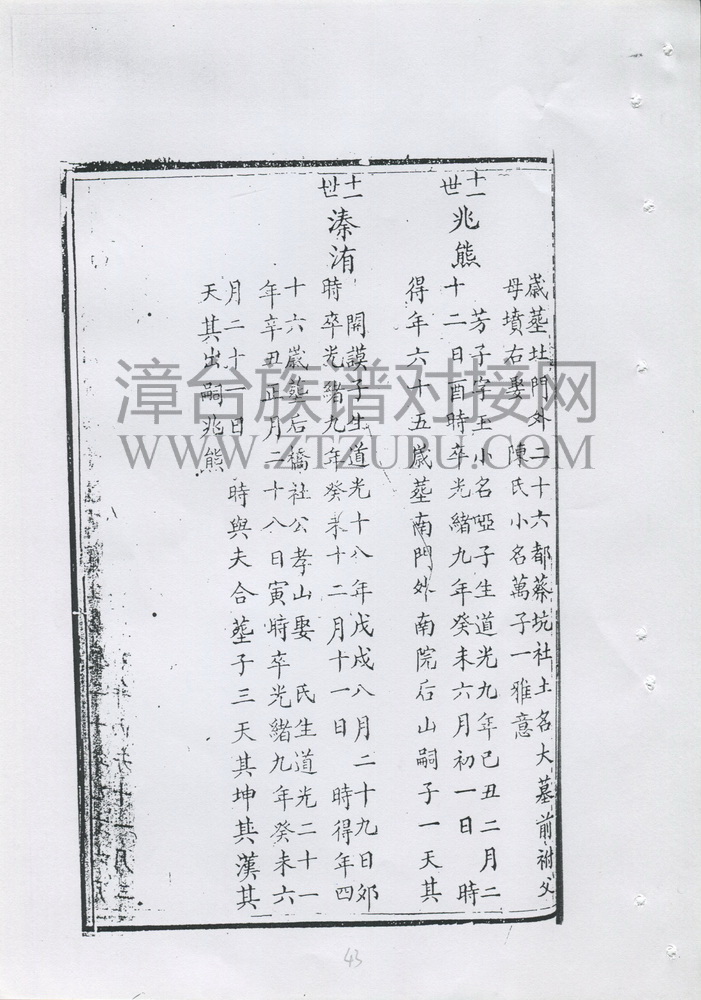 歲塟圵門外二十六都蔡坑社土名大墓前祔父
母墳右娶　陳氏小名萬子一雅意
十一世
兆熊
芳子字玉小名啞子生道光九年己丑二月二
十二日酉時卒光緒九年癸未六月初一日　時
得年六十五歲塟南門外南院后山嗣子一天其
十一世
溱洧
開謨子生道光十八年戊戌八月二十九日卯
時卒光緒九年癸未十二月十一日　時得年四
十六歲塟后橋社公孝山娶　氏生道光二十一
年辛丑正月二十八日寅時卒光緒九年癸未六
月二十一日　時與夫合塟子三天其坤其漢其
天其出嗣兆熊
漳台族谱对接网
WWW.ZTZUPU.COM
43